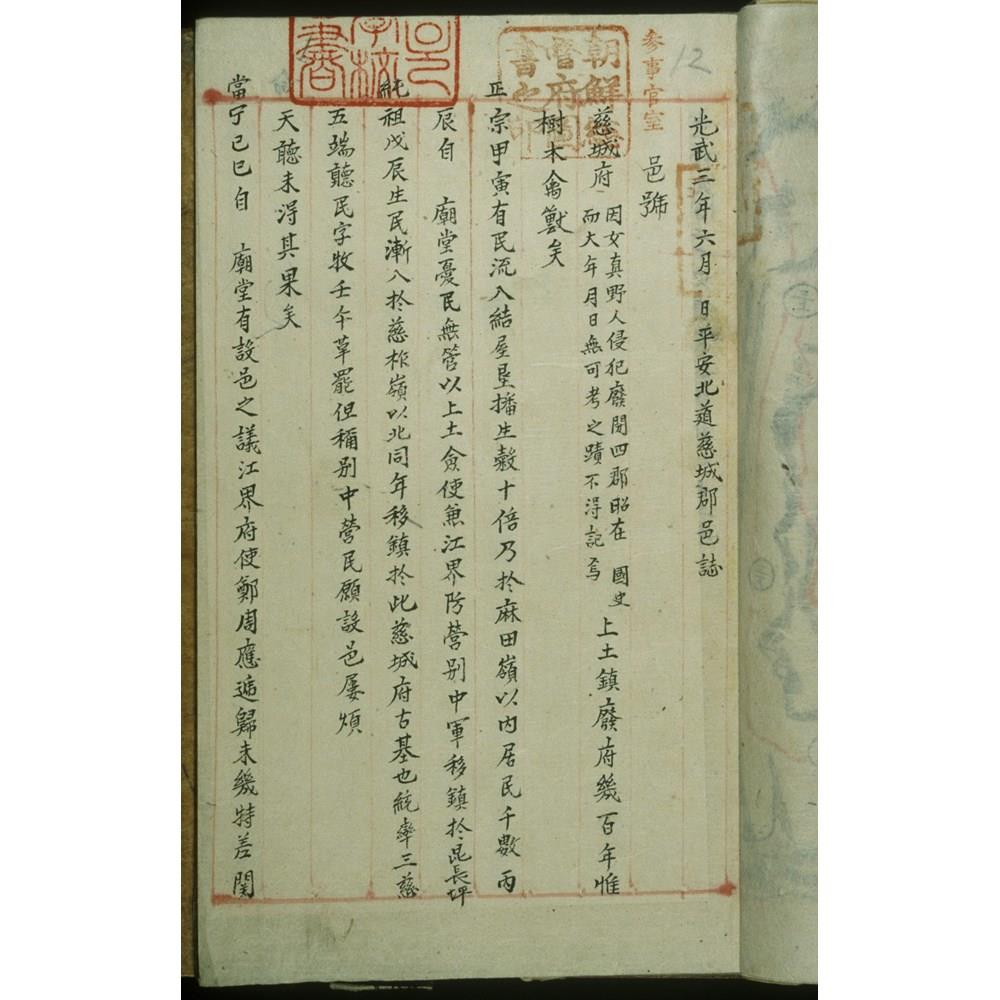 光武三年六月 日平安北道慈城郡邑誌
邑號
慈城府 因女真野人侵犯廢閭四郡昭在 國史
而大年月日無可考之蹟不得記焉 上土鎮廢府幾百年惟
樹木禽獸矣
正宗甲寅有民流入結屋墾播生穀十倍乃於麻田嶺以內居民千數丙
辰自 廟堂憂民無管以上土僉使兼江界防營别中軍移鎮於昆長坪
純祖戊辰生民漸入於慈柞嶺以北同年移鎮於此慈城府古基也統率三慈
五端聽民字牧壬午革罷但稱别中營民願設邑屢煩
天聽未得其果矣
當宁己巳自 廟堂有設邑之議江界府使鄭周應遞歸未幾特差閔
參事官室
12
朝鮮總督府圖書之印